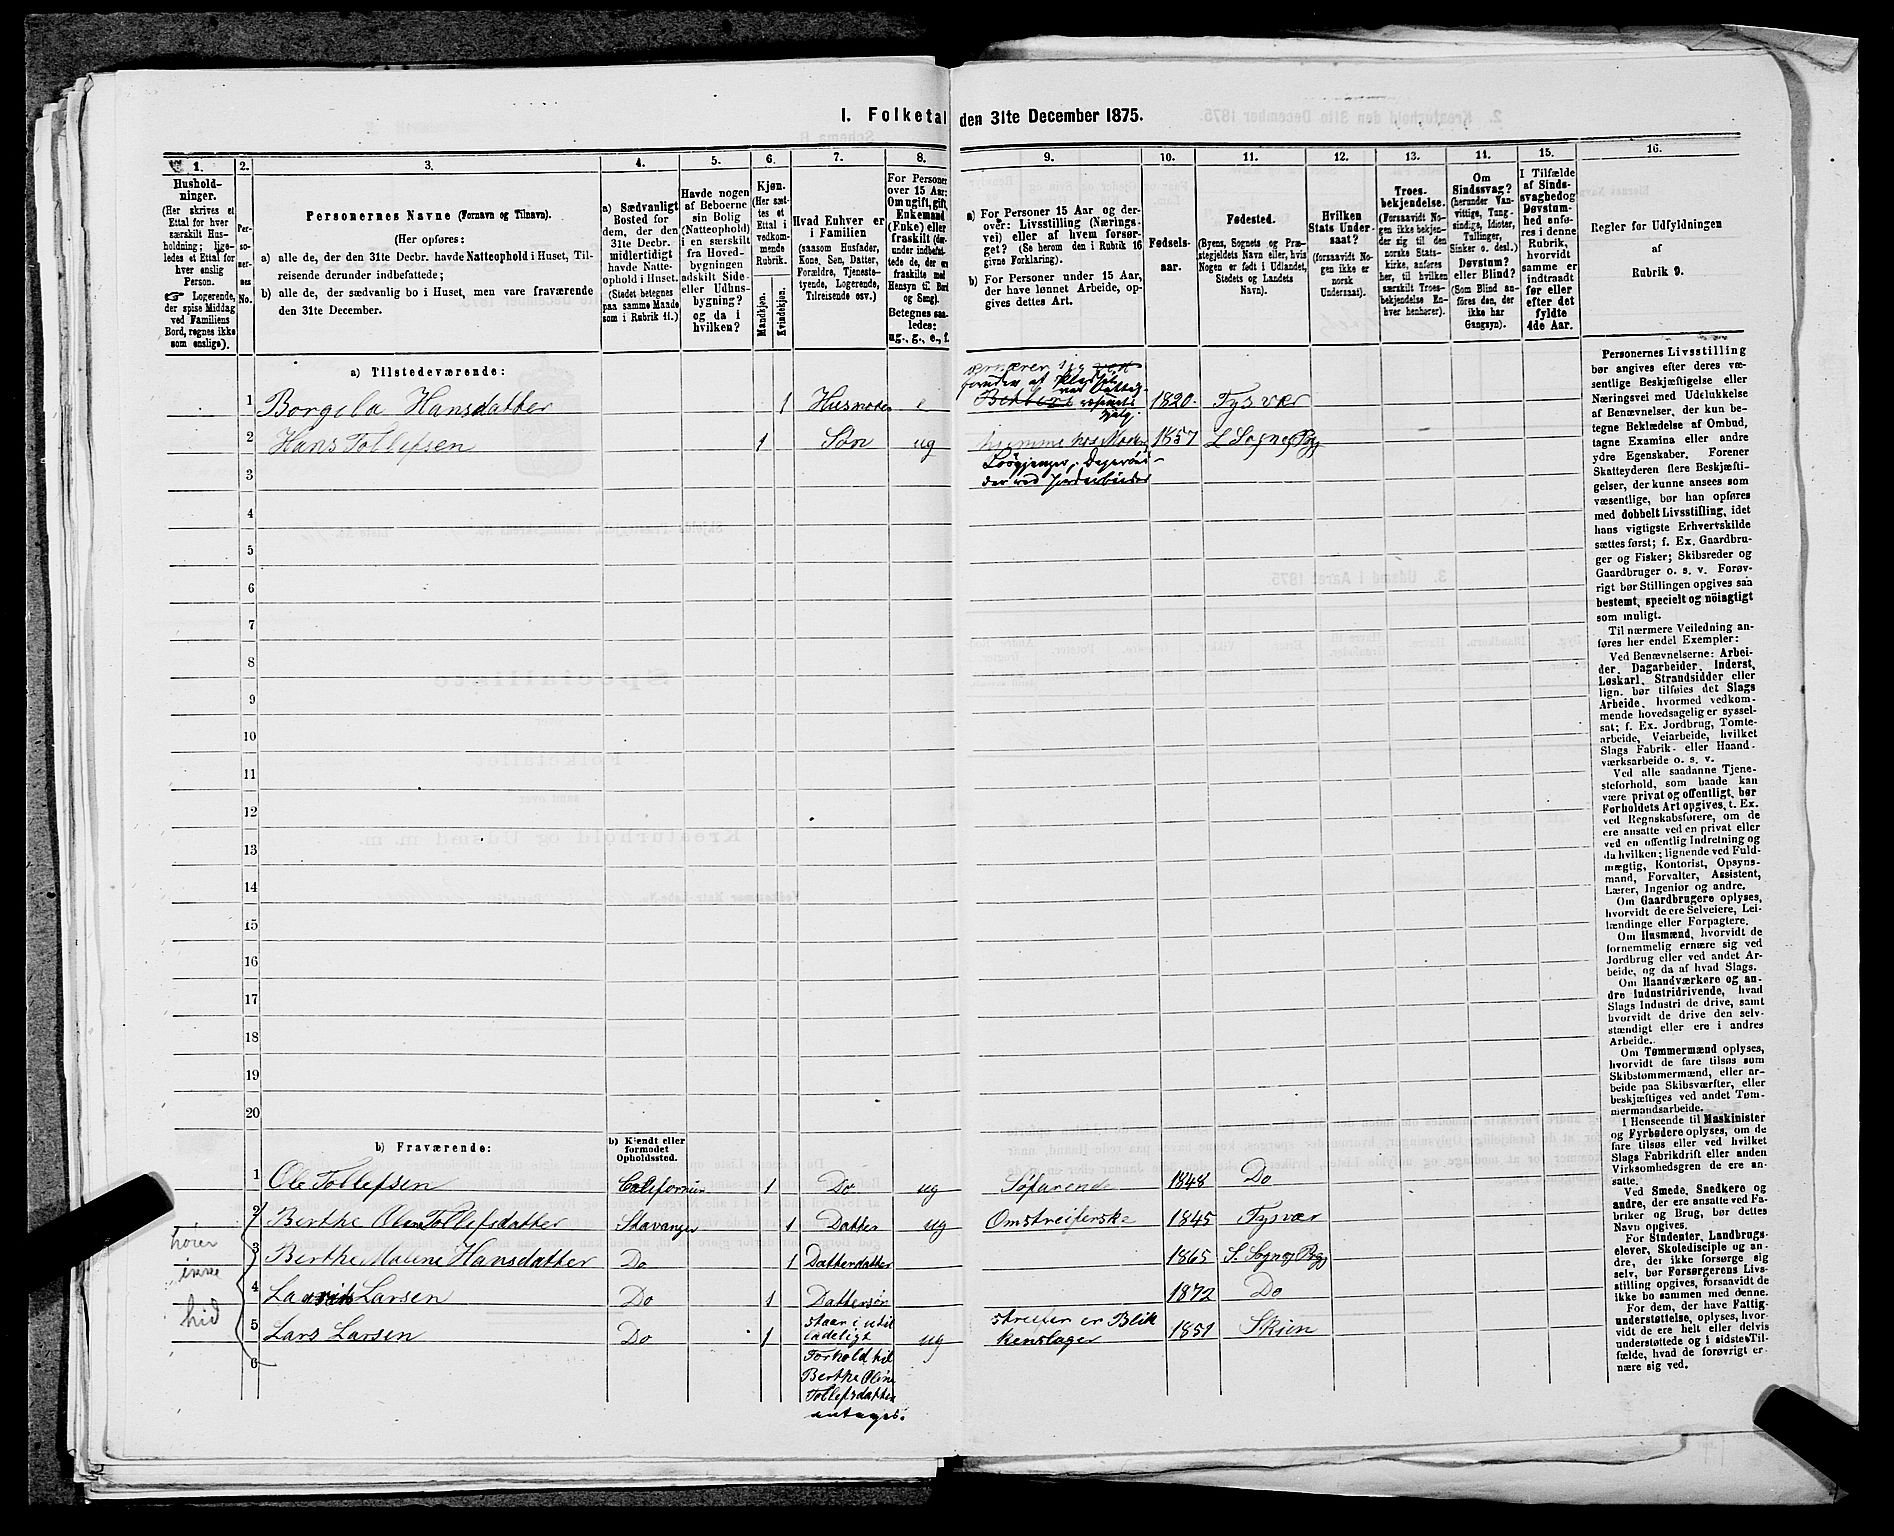 I. Folketal den 31te December 1875.
1. 2. 3. 4. 5. 6. 7. 8. 9. 10. 11. 12. 13. 14. 15. 16.
Hushold-
ninger.
(Her skrives et
Ettal for hver
særskilt Hus-
holdning; lige-
ledes et Ettal for
hver enslig
Person.
☞ Logerende,
der spise Middag
ved Familiens
Bord, regnes ikke
som enslige).
Per-
so-
ner-
nes
No.
Personernes Navne (Fornavn og Tilnavn).
(Her opføres:
a) alle de, der den 31te Decbr. havde Natteophold i Huset, Til-
reisende derunder indbefattede;
b) alle de, der sædvanlig bo i Huset, men vare fraværende
den 31te December.
a) Sædvanligt
Bosted for
dem, der den
31te Decbr.
midlertidigt
havde Natte-
ophold i Huset.
(Stedet betegnes
paa samme Maade
som i Rubrik 11.)
Havde nogen
af Beboerne
sin Bolig
(Natteophold)
i en særskilt
fra Hoved-
bygningen
adskilt Side-
eller Udhus-
bygning?
og da i
hvilken?
Kjøn.
(Her sæt-
tes et
Ettal i
vedkom-
mende
Rubrik.
Mandkjøn.
Kvindekjøn.
Hvad Enhver er
i Familien
(saasom Husfader,
Kone, Søn, Datter,
Forældre, Tjeneste-
tyende, Logerende,
Tilreisende osv.)
For Personer
over 15 Aar:
Om ugift, gift,
Enkemand
(Enke) eller
fraskilt (der-
under indbefat-
tede de, der ere
fraskilte med
Hensyn til Bord
og Seng).
Betegnes saa-
ledes:
ug., g., e., f.
a) For Personer 15 Aar og der-
over: Livsstilling (Nærings-
vei) eller af hvem forsør-
get? (Se herom den i Rubrik 16
givne Forklaring).
b) For Personer under 15 Aar,
der have lønnet Arbeide, op-
gives dettes Art.
Fødsels-
aar.
Fødested.
(Byens, Sognets og Præ-
stegjeldets Navn, eller, hvis
Nogen er født i Udlandet,
Stedets og Landets
Navn).
Hvilken
Stats Under-
saat?
(forsaavidt No-
gen ikke er
norsk
Undersaat).
Troes-
bekjendelse.
(Forsaavidt No-
gen ikke bekjen-
der sig til den
norske Stats-
kirke, anføres
her, til hvilken
særskilt Troes-
bekjendelse En-
hver henhører).
Om
Sindssvag?
(herunder Van-
vittige, Tung-
sindige, Idioter,
Tullinger,
Sinker o. desl.)
Døvstum?
eller Blind?
(Som Blind an-
føres den, der
ikke har
Gangsyn).
I Tilfælde
af Sinds-
svaghed og
Døvstum-
hed anfø-
res i denne
Rubrik,
hvorvidt
samme er
indtraadt
før eller
efter det
fyldte
4de Aar.
Regler for Udfyldningen
af
Rubrik 9.
a) Tilstedeværende:
ernærer sig
1 Borgila Hansdatter 1 Husmoder e 1820 Tysvær
2 Hans Tollefsen 1 Søn ug hjemme hos Moder 1857 L Sogn og Pgg
3
4
5
6
7
8
9
10
11
12
13
14
15
16
17
18
19
20
b) Fraværende:
b) Kjendt eller
formodet
Opholdssted.
1 Ole Tollefsen Californien 1 Do ug Søfarende 1848 Do
2 Berthe Olene Tollefsdatter Stavanger 1 Datter ug Omstreiferske 1845 Tysvær
3 Berthe Maline Hansdatter Do 1 Datterdatter 1865 S. Sogn og Pgg
4 Laurits Larsen Do 1 Dattersøn 1872 Do
5 Lars Larsen Do 1 staar i util ug streifer er Blik 1851 Skien
ladeligt kenslager
6 Forhold til
Berthe Oline
Tollefsdatter
antages.
hører
ikke
hid
Personernes Livsstilling
bør angives efter deres væ-
sentlige Beskjæftigelse eller
Næringsvei med Udelukkelse
af Benævnelser, der kun be-
tegne Beklædelse af Ombud,
tagne Examina eller andre
ydre Egenskaber. Forener
Skatteyderen flere Beskjæfti-
gelser, der kunne ansees som
væsentlige, bør han opføres
med dobbelt Livsstilling, idet
hans vigtigste Erhvervskilde
sættes først; f. Ex. Gaardbru-
ger og Fisker; Skibsreder og
Gaardbruger o. s. v. Forøv-
rigt bør Stillingen opgives saa
bestemt, specielt og nöiagtigt
som muligt.
Til nærmere Veiledning an-
føres her endel Exempler:
Ved Benævnelserne: Arbei-
der, Dagarbeider, Inderst,
Løskarl, Strandsidder eller
lign. bør tilføies det Slags
Arbeide, hvormed vedkom-
mende hovedsagelig er syssel-
sat; f. Ex. Jordbrug, Tomte-
arbeide, Veiarbeide, hvilket
Slags Fabrik- eller Haand-
værksarbeide o. s. v.
Ved alle saadanne Tjene-
steforhold, som baade kan
være privat og offentligt, bør
Forholdets Art opgives, t. Ex.
ved Regnskabsførere, om de
ere ansatte ved en privat eller
ved en offentlig Indretning og
da hvilken; lignende ved Fuld-
mægtig, Kontorist, Opsyns-
mand, Forvalter, Assistent,
Lærer, Ingeniør og andre.
Om Gaardbrugere oplyses,
hvorvidt de ere Selveiere, Lei-
lændinge eller Forpagtere.
Om Husmænd, hvorvidt de
fornemmelig ernære sig ved
Jordbrug eller ved andet Ar-
beide, og da af hvad Slags.
Om Haandværkere og an-
dre Industridrivende, hvad
Slags Industri de drive, samt
hvorvidt de drive den selv-
stændigt eller ere i andres
Arbeide.
Om Tømmermænd oplyses,
hvorvidt de fare tilsøs som
Skibstømmermænd, eller ar-
beide paa Skibsværfter, eller
beskjæftiges ved andet Tøm-
mermandsarbeide.
I Henseende til Maskinister
og Fyrbødere oplyses, om de
fare tilsøs eller ved hvilket
Slags Fabrikdrift eller anden
Virksomhedsgren de ere an-
satte.
Ved Smede, Snedkere og
andre, der ere ansatte ved Fa-
briker og Brug, bør dettes
Navn opgives.
For Studenter, Landbrugs-
elever, Skoledisciple og an-
dre, der ikke forsørge sig
selv, bør Forsørgerens Livs-
stilling opgives, forsaavidt de
ikke bo sammen med denne.
For dem, der have Fattig-
understøttelse, oplyses, hvor-
vidt de ere helt eller delvis
understøttede og i sidste Til-
fælde, hvad de forøvrigt er-
nære sig ved.